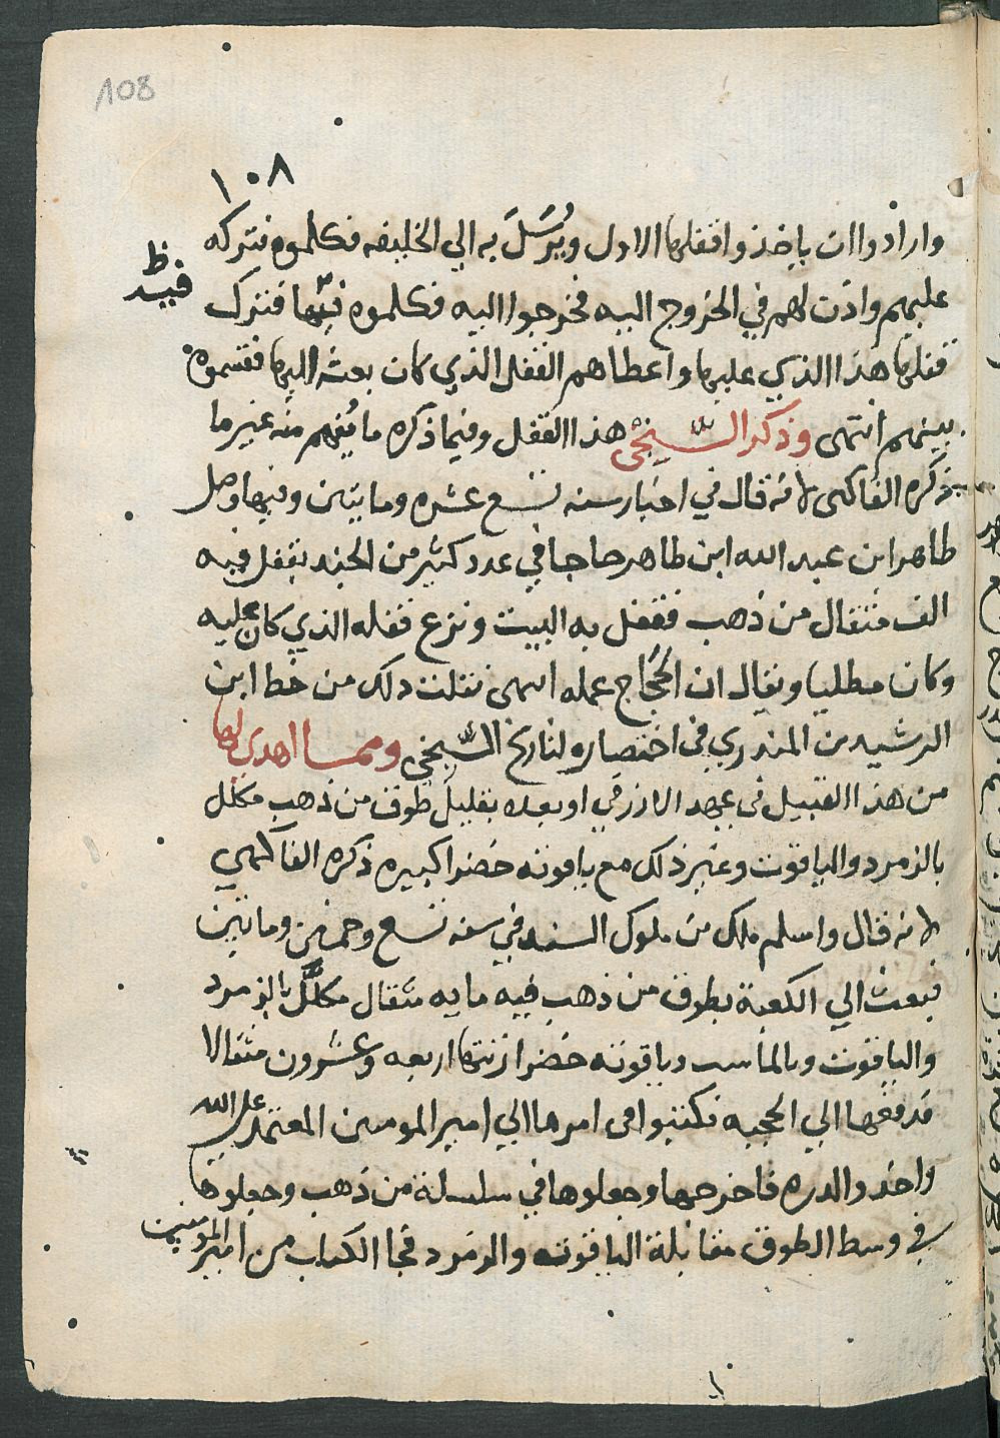 108
١٠٨
وارادوا ان ياخذوا قفلها الاول ويُرْسَلَ به الي الخليفه فكلموه فتركه
عليهم واذن لهم في الخروج اليه فخرجوا اليه فكلموه فيها فترك
قفلها هذا الذي عليها واعطاهم القفل الذي كان بعثه اليها فقسموه
بينهم انتهى وذكر السبخي هذا القفل وفيما ذكره ما يُفهم منه غير ما
ذكره الفاكهي لانه قال في اخبار سنه تسع عشره ومايتين وفيها وصل
طاهر ابن عبد الله ابن طاهر حاجا في عدد كثير من الجند بقفل فيه
الف مثقال من ذهب فقفل به البيت ونزع قفله الذي كان عليه
وكان مطليا ويقال ان الحَجّاج عمله انتهى نقلت ذلك من خط ابن
الرشيد بن المنذري في اختصاره لتاريخ السبخي ومما اهدي لها
من هذا القبيل في عهد الازرقي او بعده بقليل طوق من ذهب مكلل
بالزمرد والياقوت وغير ذلك مع ياقوته خضرا كبيره ذكره الفاكهي
لانه قال واسلم ملك من ملوك السند في سنه تسع وخمسين ومايتين
فبعث الي الكعبة بطوق من ذهب فيه مايه مثقال مكلَّل بالزمرد
والياقوت وبالماس وياقوته خضرا زنتها اربعه وعشرون مثقالا
فدفعها الي الحجبه فكتبوا في امرها الي امير المومنين المعتمد علي الله
واخذوا الدره فاخرجها وجعلوها في سلسلة من ذهب وجعلوها
في وسط الطوق مقابلة الياقوته والزمرد فجا الكتاب من امير المومنين